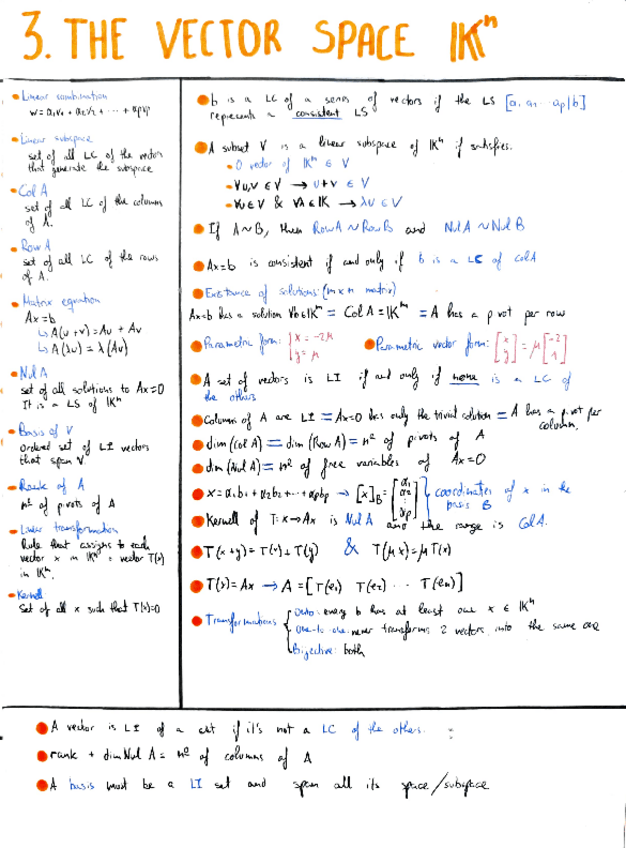 3. THE VECTOR SPACE 𝕂ⁿ
• Linear combination
w = a₁v₁ + a₂v₂ + ··· + apvp
• Linear subspace
set of all LC of the vectors
that generate the subspace
• Col A
set of all LC of the columns
of A.
• Row A
set of all LC of the rows
of A.
• Matrix equation
Ax=b
↳ A(u+v) = Au + Av
↳ A(λu) = λ(Au)
• Nul A
set of all solutions to Ax=0
It is a LS of 𝕂ⁿ
• Basis of V
Ordered set of LI vectors
that span V.
• Rank of A
nº of pivots of A
• Linear transformation
Rule that assigns to each
vector x in 𝕂ⁿ a vector T(x)
in 𝕂ᵐ.
• Kernel
Set of all x such that T(x)=0
• b is a LC of a series of vectors if the LS [a₁ a₂ ··· ap | b]
represents a consistent LS
• A subset V is a linear subspace of 𝕂ⁿ if satisfies.
• 0 vector of 𝕂ⁿ ∈ V
• ∀u,v ∈ V → u+v ∈ V
• ∀u∈V & ∀λ∈𝕂 → λu ∈ V
• If A~B, then Row A ~ Row B and Nul A ~ Nul B
• Ax=b is consistent if and only if b is a LC of col A
• Existance of solutions: (m x n matrix)
Ax=b has a solution ∀b∈𝕂ᵐ = Col A = 𝕂ᵐ = A has a pivot per row
• Parametric form: { x = -2μ
y = μ
• Parametric vector form: [x y] = μ [-2 1]
• A set of vectors is LI if and only if none is a LC of
the others
• Columns of A are LI = Ax=0 has only the trivial solution = A has a pivot per
column.
• dim (col A) = dim (Row A) = nº of pivots of A
• dim (Nul A) = nº of free variables of Ax=0
• x = a₁b₁ + a₂b₂ + ··· + apbp → [x]B = [a₁ a₂ ⋮ ap] } coordinates of x in the
basis B
• Kernell of T: x → Ax is Nul A and the range is Col A.
• T(x+y) = T(x) + T(y) & T(μx) = μT(x)
• T(x) = Ax → A = [T(e₁) T(e₂) ··· T(en)]
• Transformations { Onto: every b has at least one x ∈ 𝕂ⁿ
One-to-one: never transforms 2 vectors into the same one
Bijective: both
• A vector is LI of a set if it's not a LC of the others.
• rank + dim Nul A = nº of columns of A
• A basis must be a LI set and span all its space/subspace